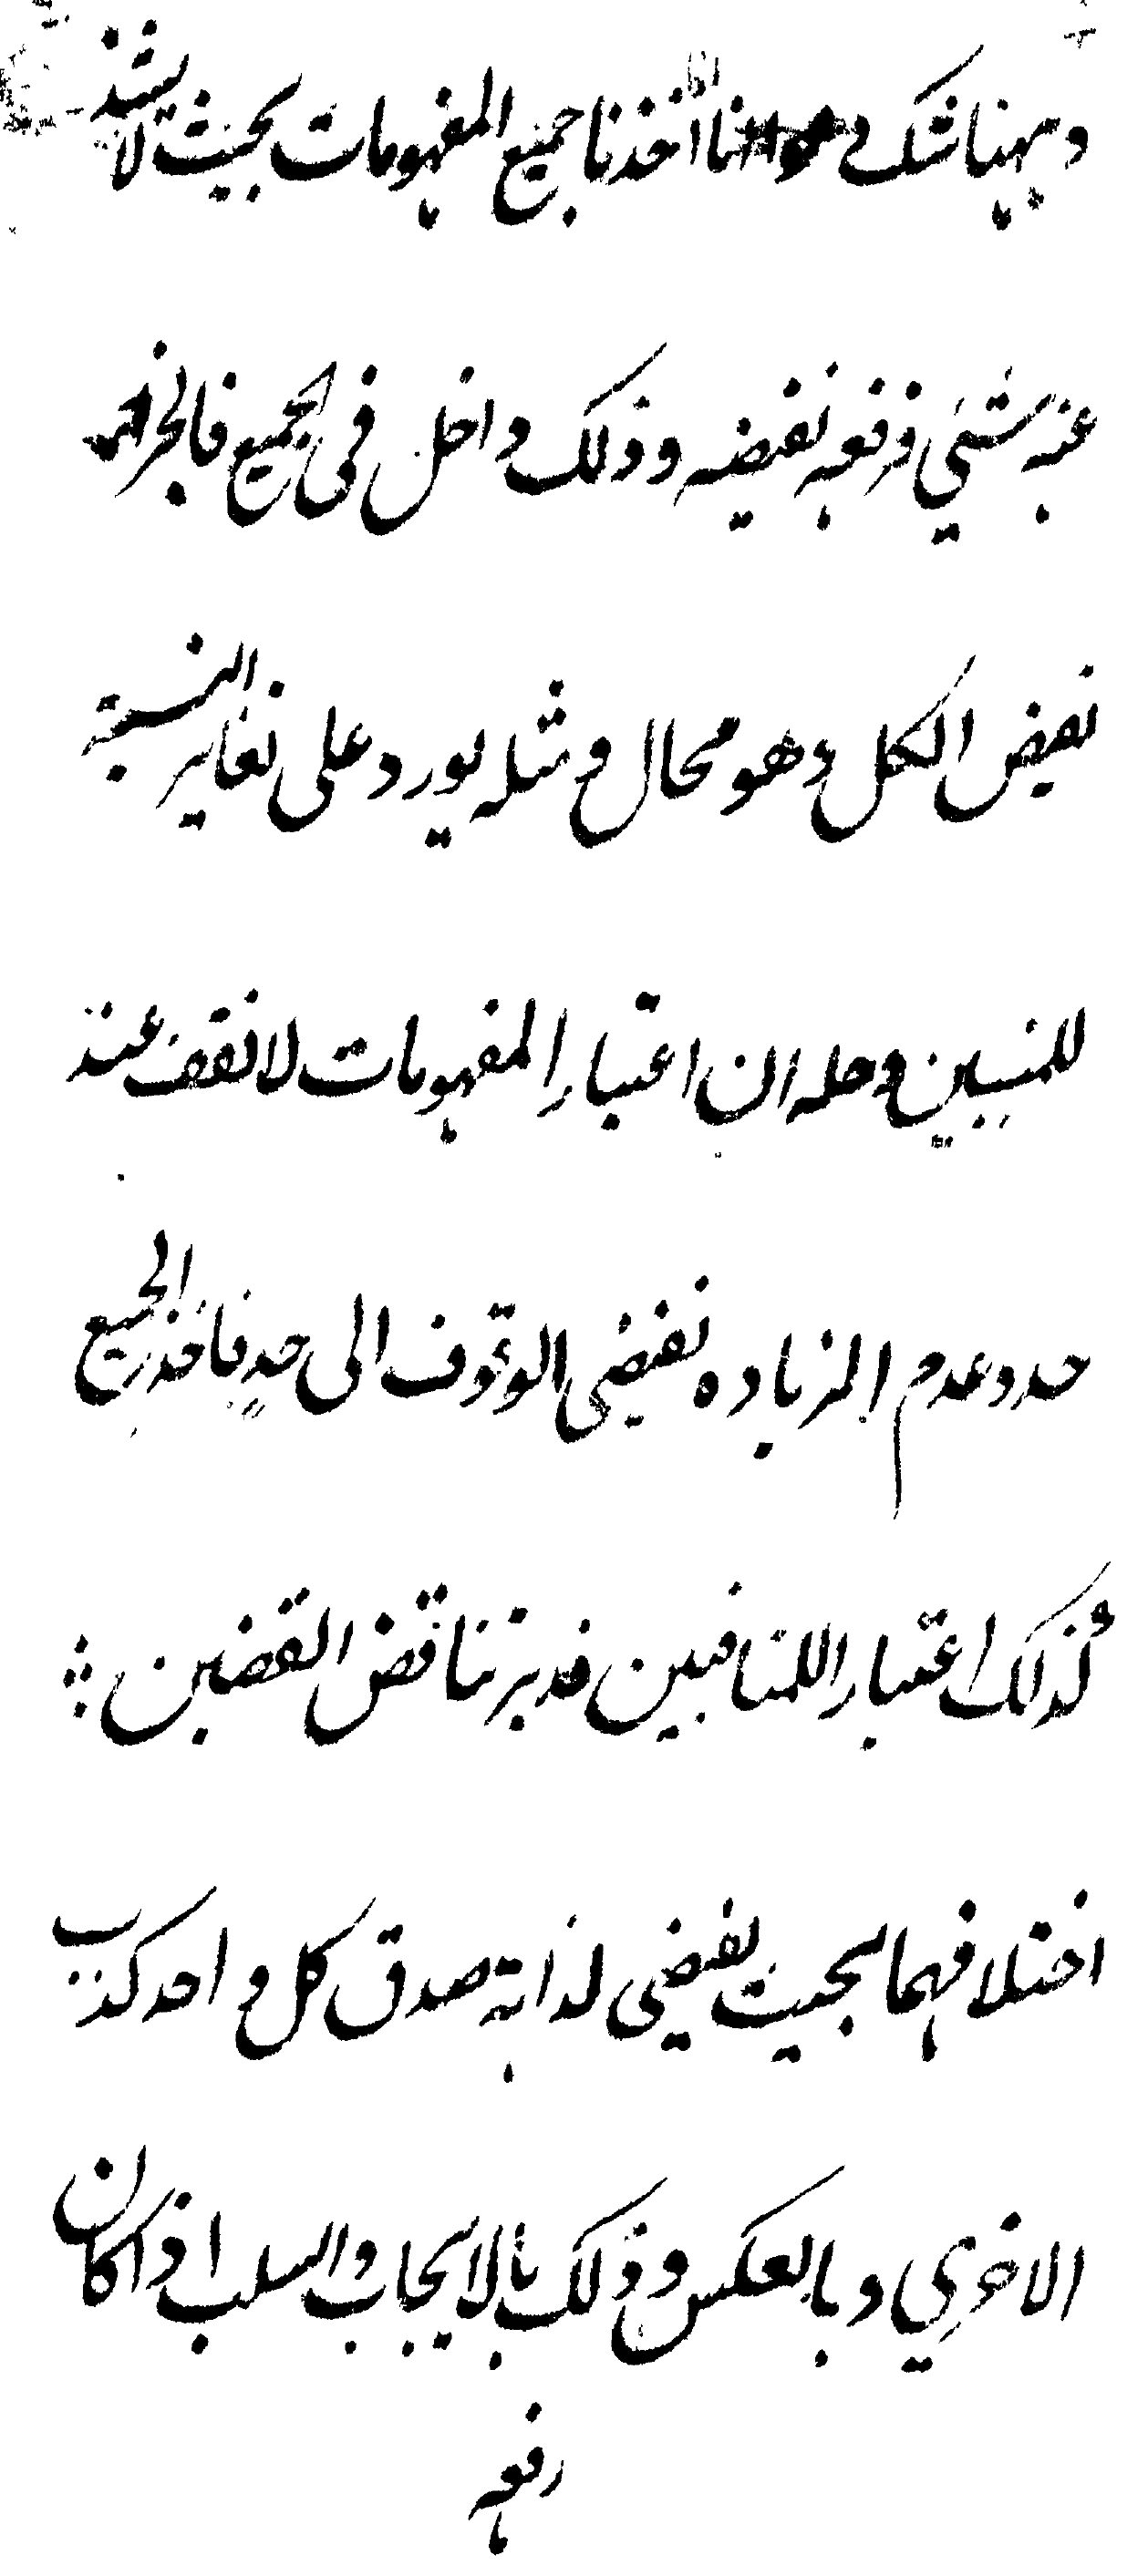 وههنا شك وهو انا اذا اخذنا جميع المفهومات بحيث لا يشذ
عنه شئي فرفعه نقيضه وذلك داخل في الجميع فالجزء
نقيض الكل وهو محال ومثله يورد على تغاير النسبة
للمنتسبين وحله ان اعتبار المفهومات لا تقف عند
حد وعدم الزيادة يقتضي الوقوف الى حد فاخذ الجميع
كذلك اعتبار للمتنافيين فتدبر تناقض القضيتين
اختلافهما بحيث يقتضي لذاته صدق كل واحد كذب
الاخرى وبالعكس وذلك بالايجاب والسلب اذا كان
رفعه